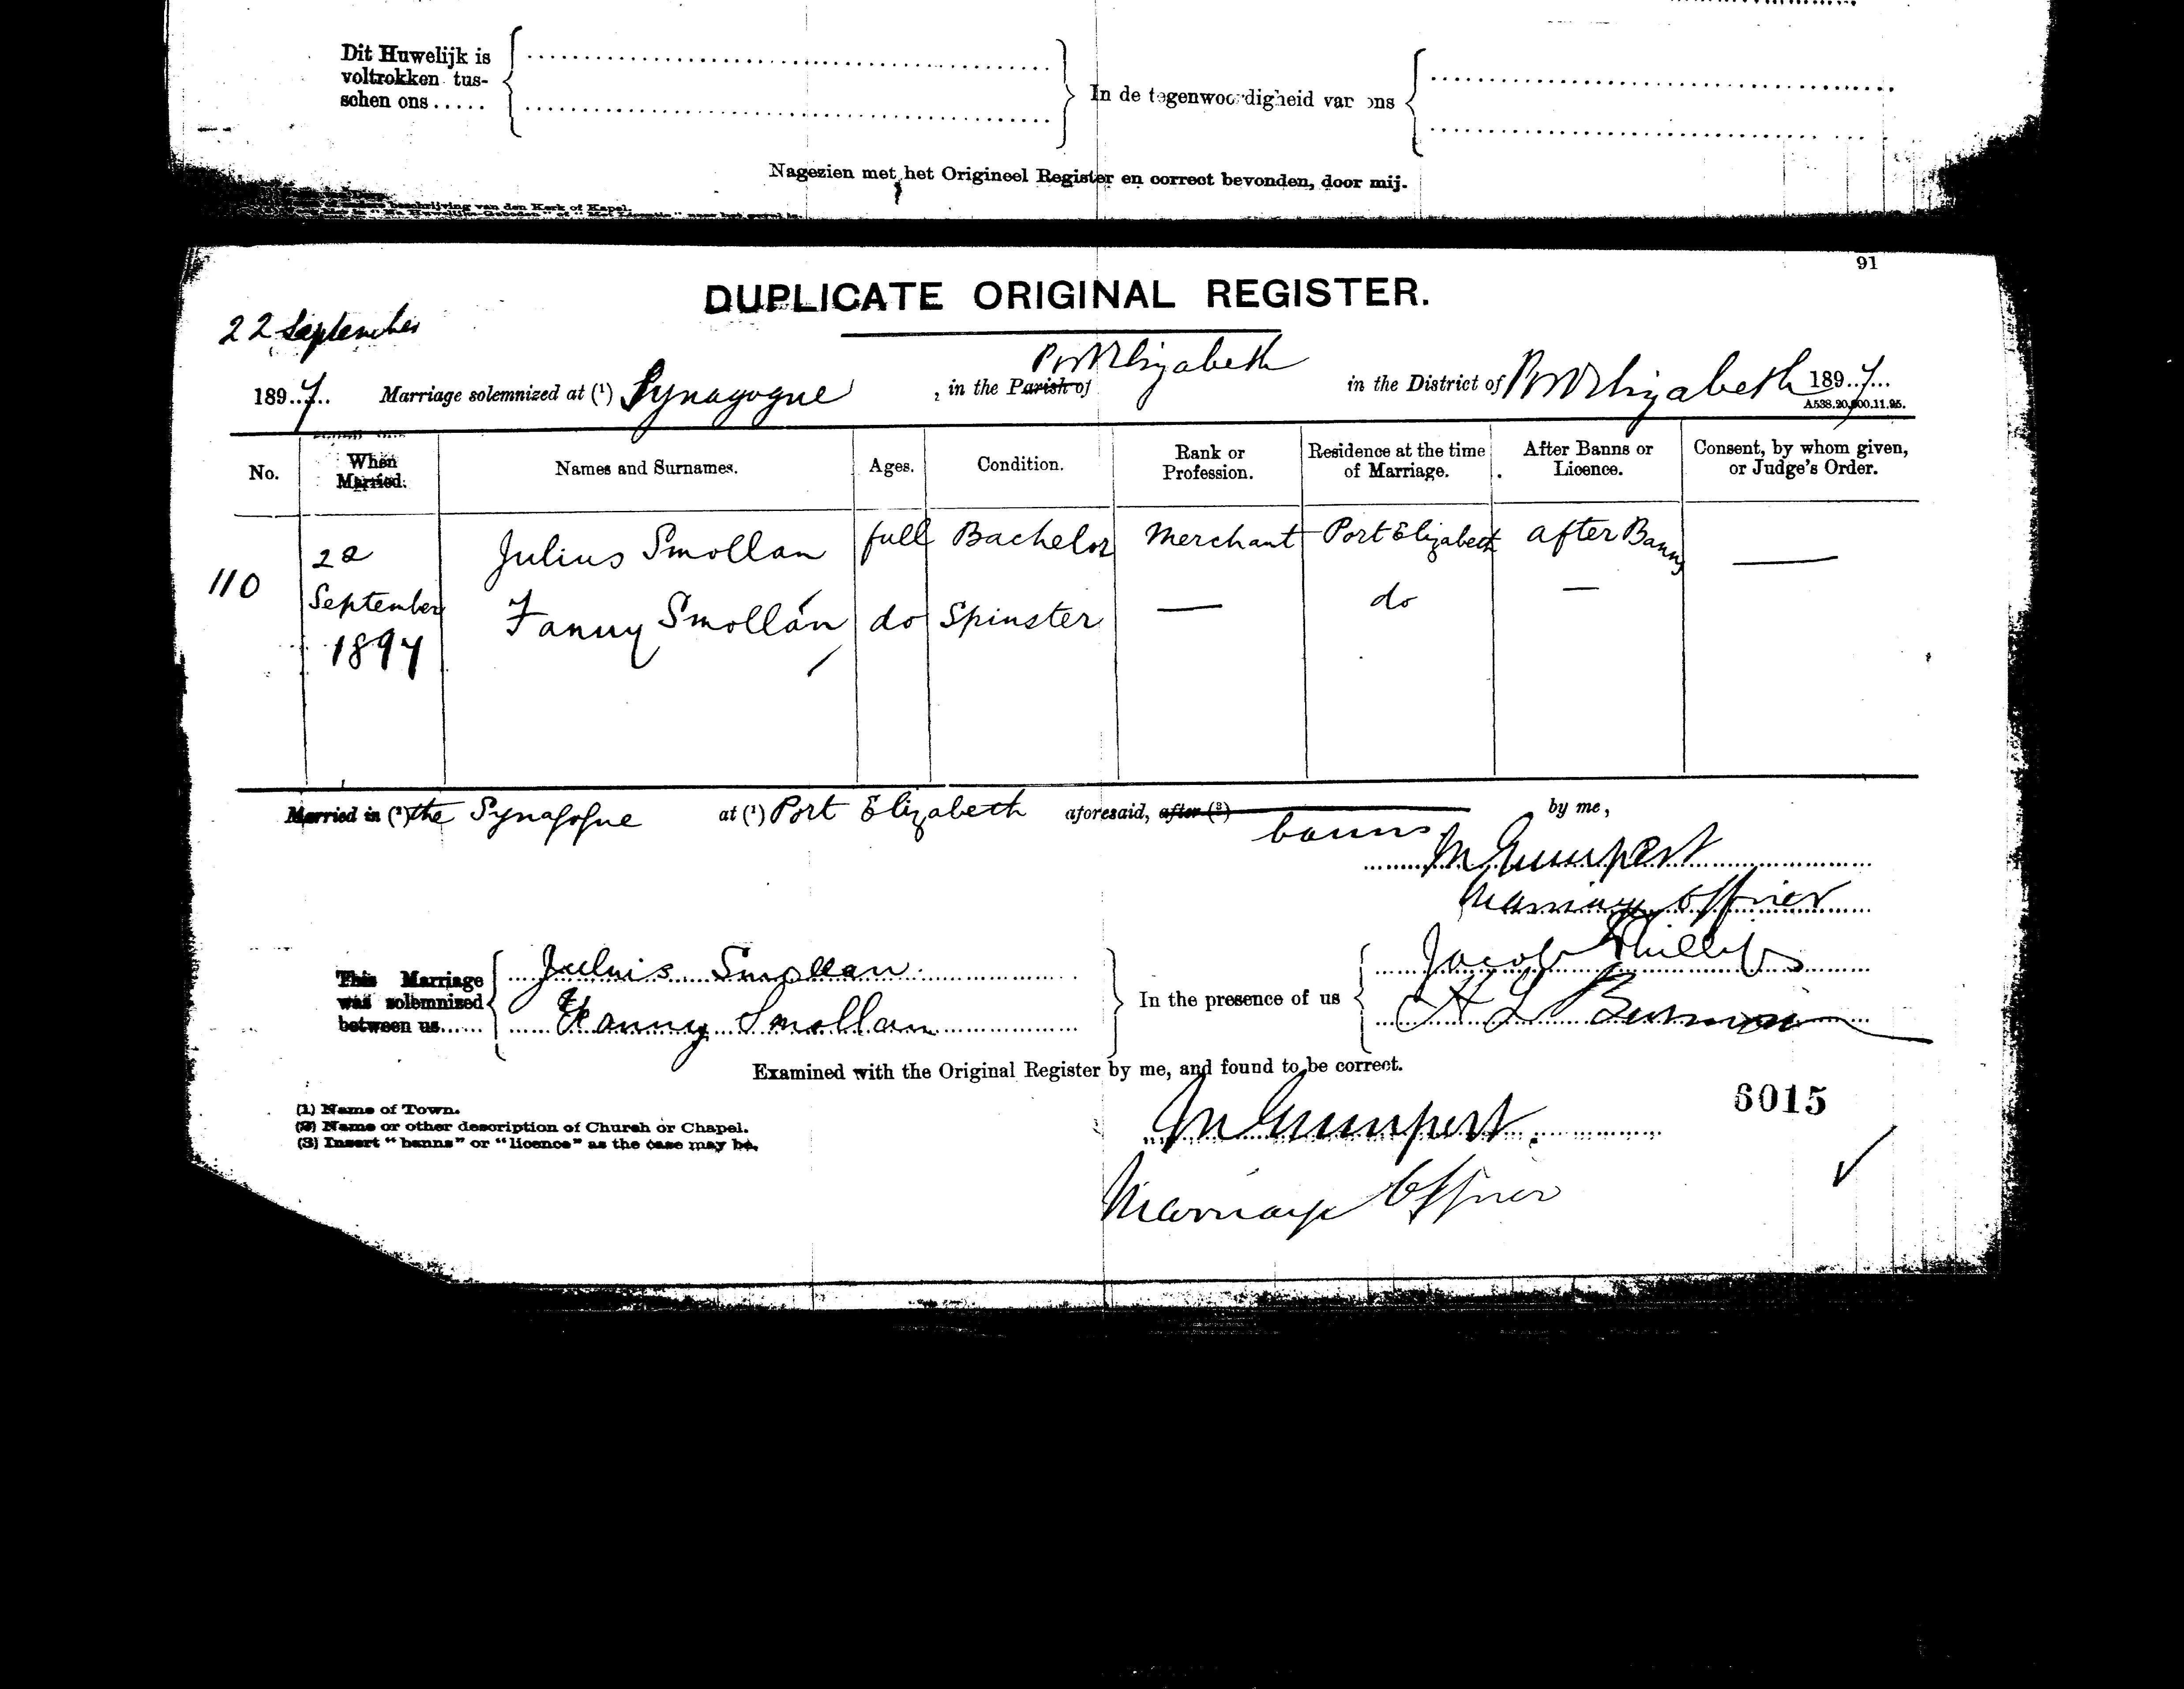 Dit Huwelijk is
voltrokken tus-
schen ons .....
In de tegenwoordigheid van ons
Nagezien met het Origineel Register en correct bevonden, door mij.
beschrijving van den Kerk of Kapel.
91
DUPLICATE ORIGINAL REGISTER.
22 September
1897 Marriage solemnized at (1) Synagogue, in the Parish of Port Elizabeth in the District of Port Elizabeth 1897
A538.20,000.11.95.
No. When Married. Names and Surnames. Ages. Condition. Rank or Profession. Residence at the time of Marriage. After Banns or Licence. Consent, by whom given, or Judge's Order.
110 22 September 1897 Julius Smollan full Bachelor Merchant Port Elizabeth after Banns —
Fanny Smollan do Spinster — do —
Married in (2) the Synagogue at (1) Port Elizabeth aforesaid, after (3) banns by me,
M Gumpert
Marriage Officer
This Marriage
was solemnized
between us......
Julius Smollan
Fanny Smollan
In the presence of us
Jacob Phillips
H L
Examined with the Original Register by me, and found to be correct.
M Gumpert.
Marriage Officer
6015
(1) Name of Town.
(2) Name or other description of Church or Chapel.
(3) Insert "banns" or "licence" as the case may be.